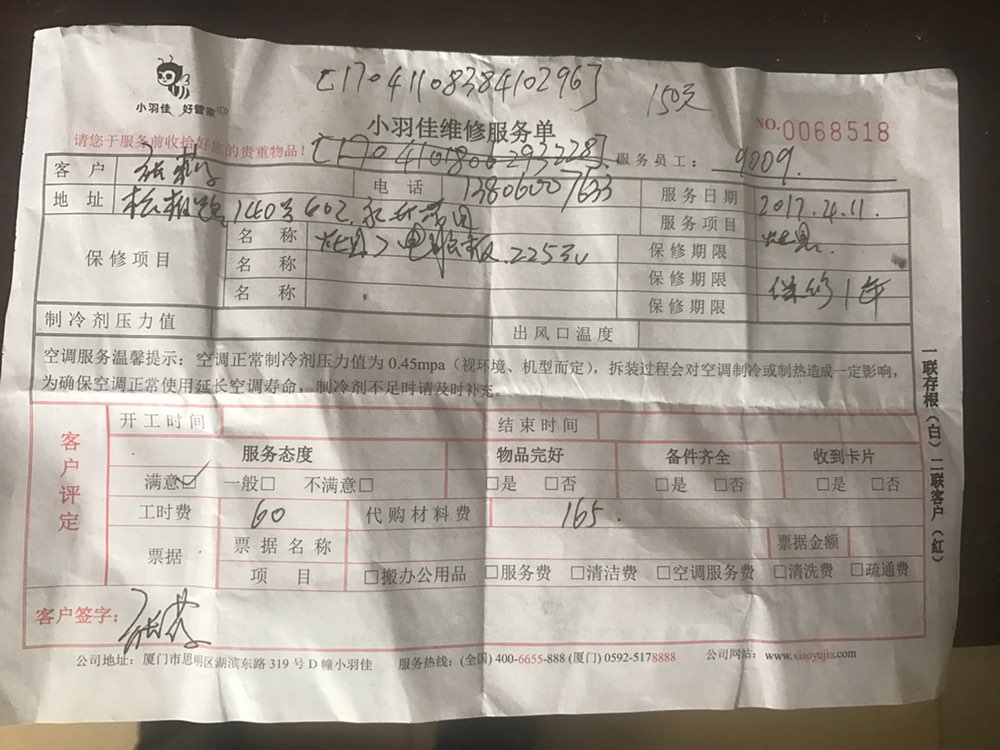 [1704110838410296]
150元
小羽佳 好管家
小羽佳维修服务单
NO.0068518
请您于服务前收拾好您的贵重物品!
[1704101800293228]
服务员工: 9009.
客户 张
电话 13806007633
服务日期 2017.4.11.
地址 松柏 140号602
服务项目 灶具
保修项目
名称 灶具 电 板 225元
保修期限
名称
保修期限 保修1年
名称
保修期限
制冷剂压力值
出风口温度
空调服务温馨提示: 空调正常制冷剂压力值为 0.45mpa(视环境、机型而定),拆装过程会对空调制冷或制热造成一定影响,
为确保空调正常使用延长空调寿命,制冷剂不足时请及时补充。
一联存根(白)二联客户(红)
客户评定
开工时间
结束时间
服务态度 物品完好 备件齐全 收到卡片
满意☑ 一般□ 不满意□ □是 □否 □是 □否 □是 □否
工时费 60 代购材料费 165.
票据 票据名称 票据金额
项目 □搬办公用品 □服务费 □清洁费 □空调服务费 □清洗费 □疏通费
客户签字: 张
公司地址: 厦门市思明区湖滨东路 319 号 D 幢小羽佳 服务热线: (全国) 400-6655-888 (厦门) 0592-5178888 公司网站: www.xiaoyujia.com